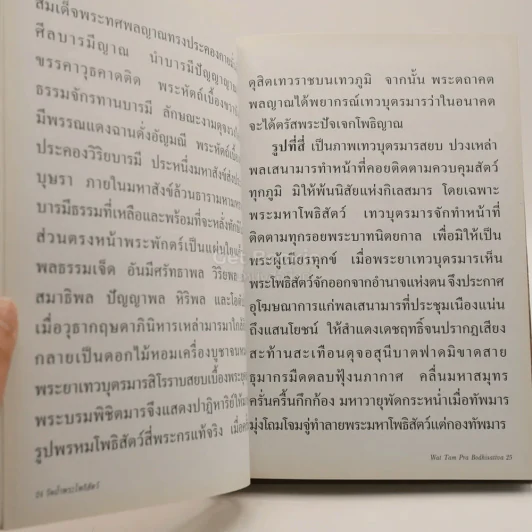 สมเด็จพระทศพลญาณทรงประคอง
ศีลบารมีญาณ นำบารมีปัญญาญาณ
ขรรคาวุธคาดติด พระหัตถ์เบื้อง
ธรรมจักรทานบารมี ลักษณะงามดุจ
มีพรรณแดงฉานดั่งอัญมณี พระหัตถ์
ประคองวิริยบารมี ประหนึ่งมหาสังข์
บุษรา ภายในมหาสังข์ล้วนธาราม
บารมีธรรมที่เหลือและพร้อมที่จะหลั่ง
ส่วนตรงหน้าพระพักตร์เป็นแผ่น
พลธรรมเจ็ด อันมีศรัทธาพล วิริยพล
สมาธิพล ปัญญาพล หิริพล และ
เมื่อวุธากฤษดาภินิหารเหล่ามารมา
กลายเป็นดอกไม้หอมเครื่องบูชา
พระยาเทวบุตรมารสิโรราบสยบเบื้อง
พระบรมพิชิตมารจึงแสดงปาฏิหาริย์
รูปพรหมโพธิสัตว์สี่พระกรแท้จริง
24 วัดถ้ำพระโพธิสัตว์
ดุสิตเทวราชบนเทวภูมิ จากนั้น พระตถาคต
พลญาณได้พยากรณ์เทวบุตรมารว่าในอนาคต
จะได้ตรัสพระปัจเจกโพธิญาณ
รูปที่สี่ เป็นภาพเทวบุตรมารสยบ ปวงเหล่า
พลเสนามารทำหน้าที่คอยติดตามควบคุมสัตว์
ทุกภูมิ มิให้พ้นนิสัยแห่งกิเลสมาร โดยเฉพาะ
พระมหาโพธิสัตว์ เทวบุตรมารจักทำหน้าที่
ติดตามทุกรอยพระบาทนิตยกาล เพื่อมิให้เป็น
พระผู้เนียรทุกข์ เมื่อพระยาเทวบุตรมารเห็น
พระโพธิสัตว์จักออกจากอำนาจแห่งตน จึงประกาศ
อุโฆษณาการแก่พลเสนามารที่ประชุมเนืองแน่น
ถึงแสนโยชน์ ให้สำแดงเดชฤทธิ์จนปรากฏเสียง
สะท้านสะเทือนดุจอสุนีบาตฟาดมิขาดสาย
ธุมากรมืดตลบฟุ้งนภากาศ คลื่นมหาสมุทร
ครั่นครื้นกึกก้อง มหาวายุพัดกระหน่ำเมื่อทัพมาร
มุ่งโถมโจมจู่ทำลายพระมหาโพธิสัตว์แต่กองทัพมาร
Wat Tam Pra Bodhisattva 25